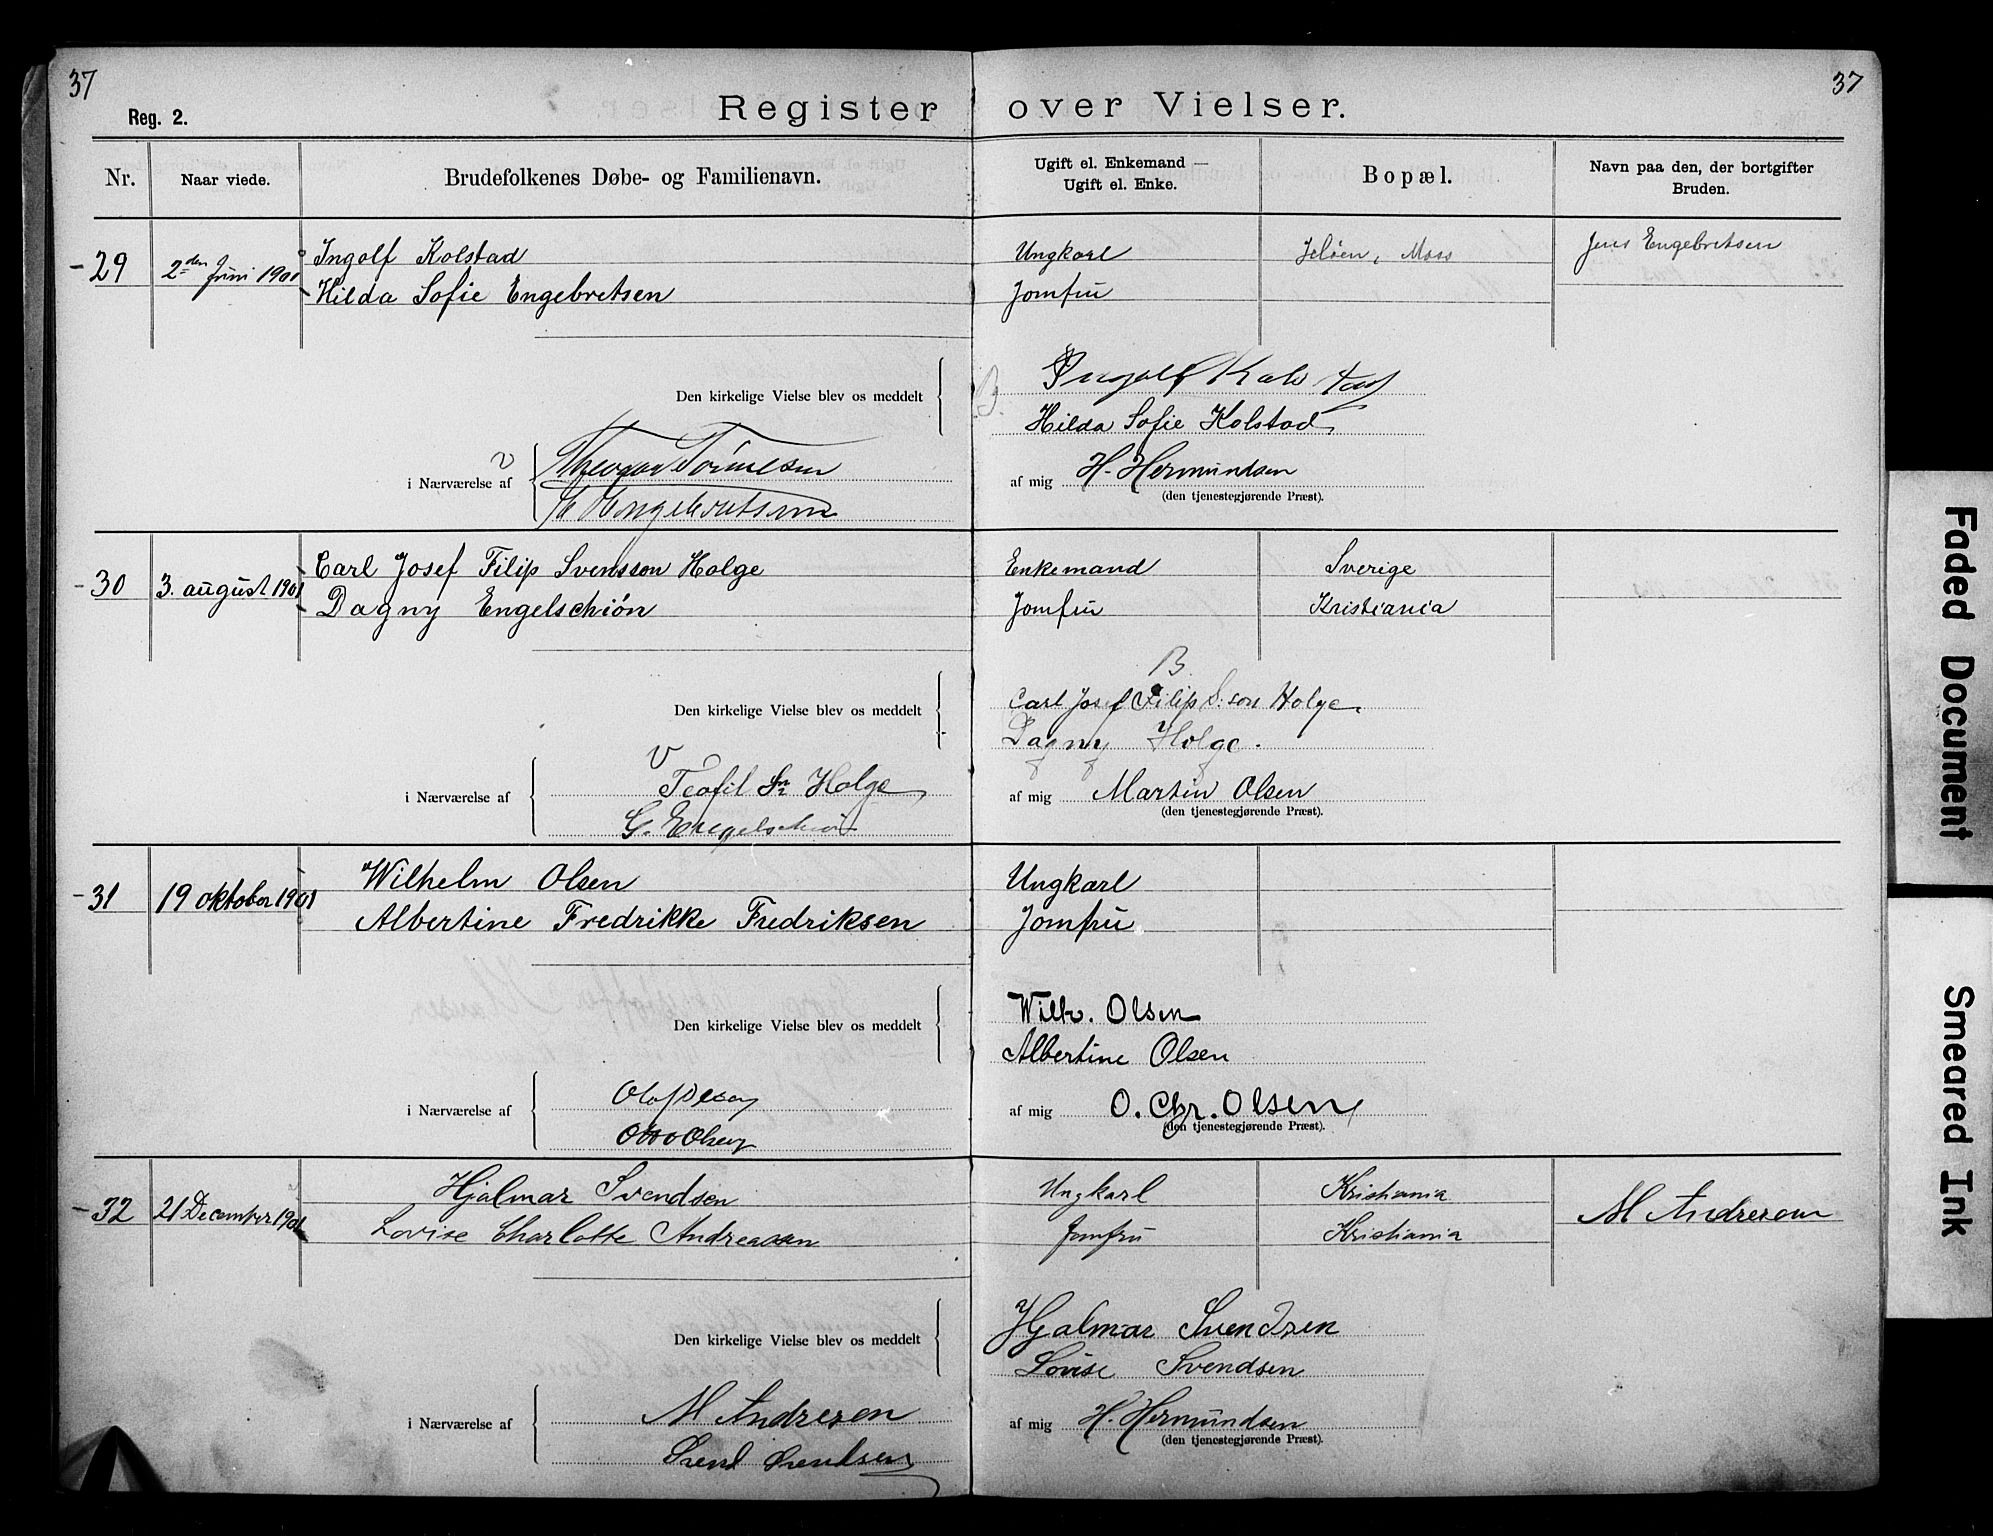 37
37
Reg. 2.
Register over Vielser.
Nr.
Naar viede.
Brudefolkenes Døbe- og Familienavn.
Ugift el. Enkemand —
Ugift el. Enke.
Bopæl.
Navn paa den, der bortgifter
Bruden.
29
2den Juni 1901
Ingolf Kolstad
Ungkarl
Jeløen, Moss
Jens Engebretsen
Hilda Sofie Engebretsen
Jomfru
Den kirkelige Vielse blev os meddelt
B.
Ingolf Kolstad
Hilda Sofie Kolstad
i Nærværelse af
af mig H. Hermundsen
(den tjenestegjørende Præst).
Engebretsen
30
3. august 1901
Carl Josef Filip Svensson Holge
Enkemand
Sverige
Dagny Engelschiøn
Jomfru
Kristiania
B.
Den kirkelige Vielse blev os meddelt
Carl Josef Filip S:son Holge
Dagny Holge.
V
i Nærværelse af
Teofil Sn Holge
G. Engelschiøn
af mig Martin Olsen
(den tjenestegjørende Præst).
31
19 oktober 1901
Wilhelm Olsen
Ungkarl
Albertine Fredrikke Fredriksen
Jomfru
Den kirkelige Vielse blev os meddelt
Wilh. Olsen
Albertine Olsen
i Nærværelse af
Olaf
Otto Olsen
af mig O. Chr. Olsen
(den tjenestegjørende Præst).
32
21 December 1901
Hjalmar Svendsen
Ungkarl
Kristiania
M Andresen
Lovise Charlotte Andreasen
Jomfru
Kristiania
Den kirkelige Vielse blev os meddelt
Hjalmar Svendsen
Lovise Svendsen
i Nærværelse af
M Andresen
Svend Svendsen
af mig H. Hermundsen
(den tjenestegjørende Præst).
Faded Document
Smeared Ink